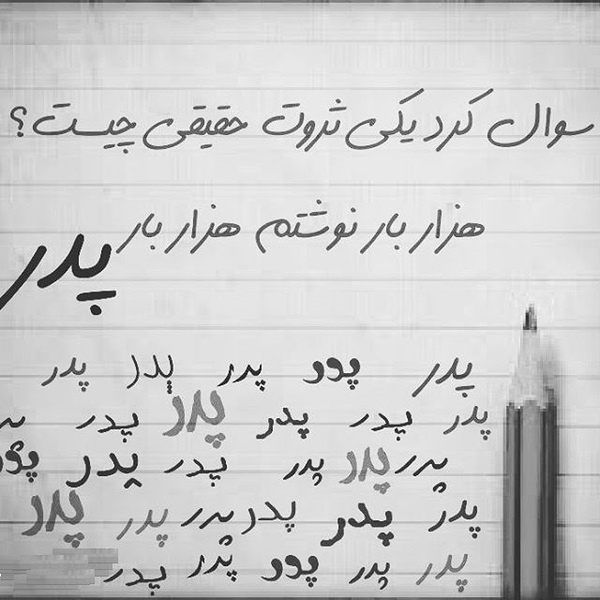 سوال کرد یکی ثروت حقیقی چیست؟
هزار بار نوشتم هزار بار پدر
پدر پدر پدر پدر پدر
پدر پدر پدر پدر پدر پدر
پدر پدر پدر پدر پدر پدر
پدر پدر پدر پدر پدر پدر
پدر پدر پدر پدر پدر